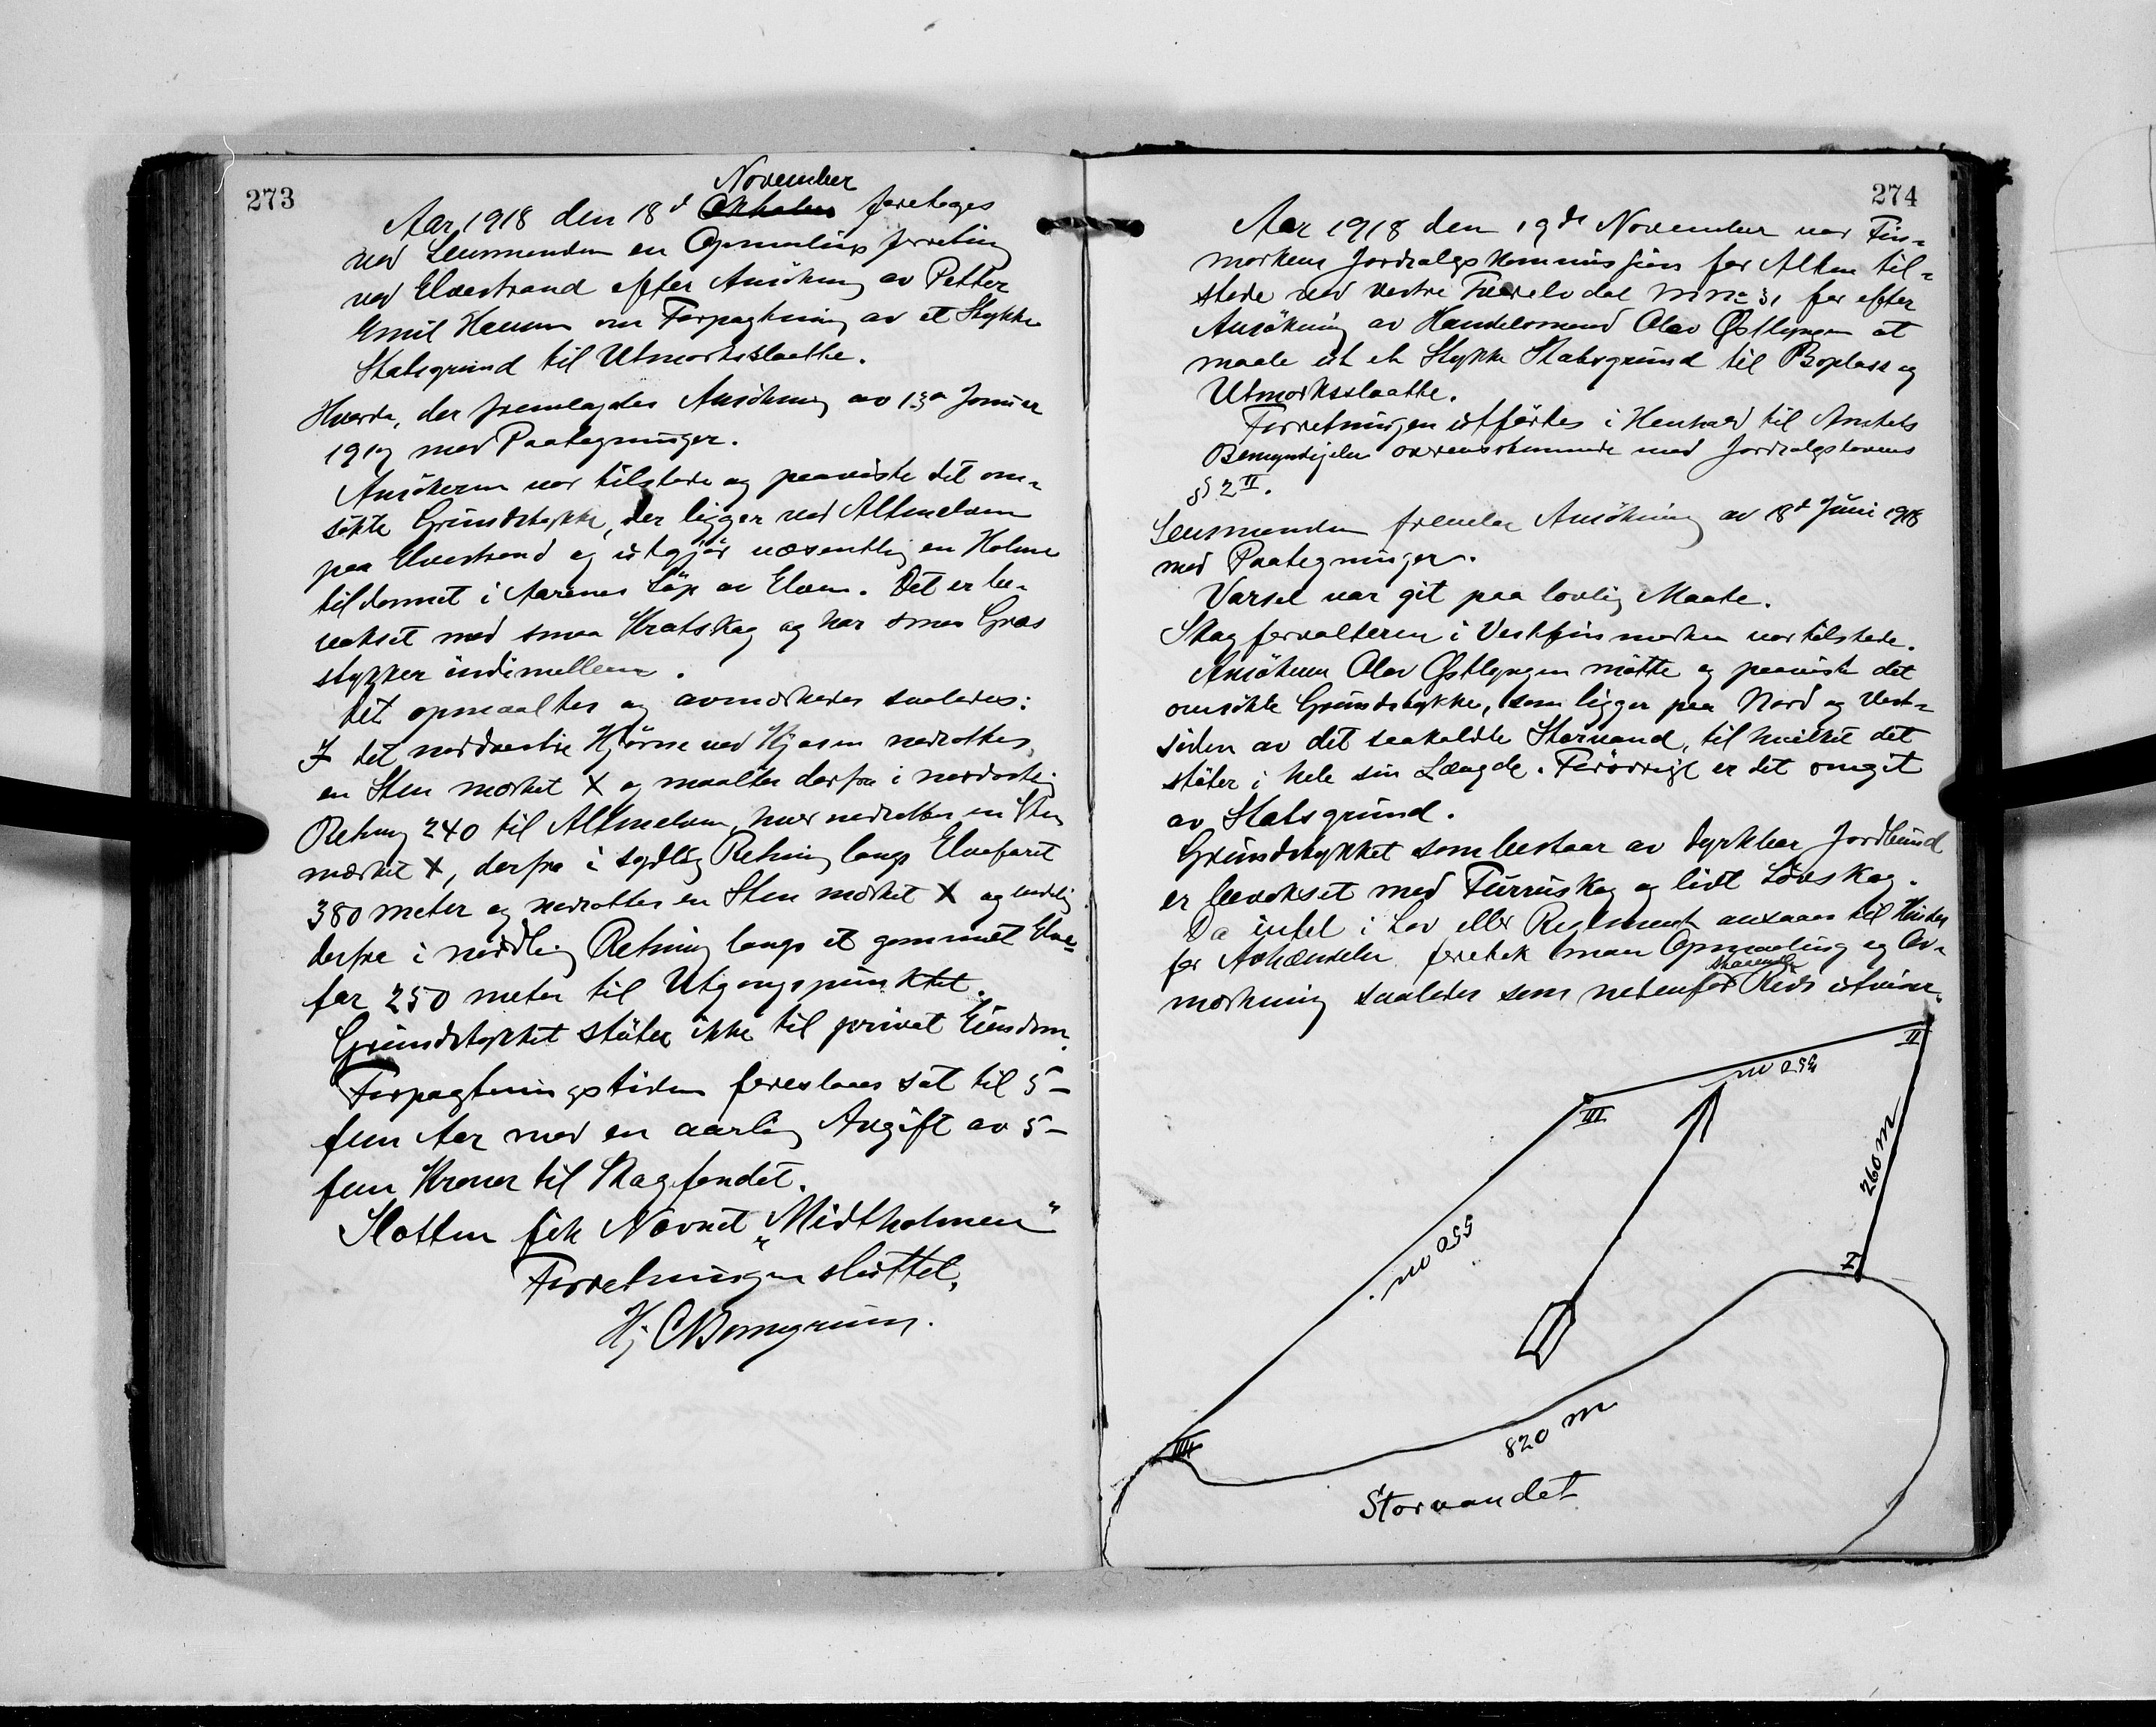 273
November
Aar 1918 den 18d Oktober foretoges
ved Lensmanden en Opmalings forretning
ved Elvestrand efter Ansökning av Petter
Emil Hansen om Forpagtning av et Stykke
Statsgrund til Utmarksslaatte.
Hvorda, der fremlagdes Ansökning av 13de Januar
1917 med Paategninger.
Ansökeren var tilstede og paaviste det om-
sökte Grundstykke, der ligger ved Altenelven
paa Elvestrand og utgjör væsentlig en Holme
tildannet i Aarenes Löp av Elven. Det er be-
vokset med smaa Kratskog og har smaa Græs
stykker indimellem.
Det opmaaltes og avmerkedes saaledes:
I det nordvestre Hjörne ved Kjosen nedsattes
en Sten merket X og maaltes derfra i nordostlig
Retning 240 til Altenelven, hvor nedsattes en Sten
merket X, derfra i sydlig Retning langs Elvefaret
380 meter og nedsattes en Sten merket X og endelig
derfra i nordlig Retning langs et gammelt Elve-
far 250 meter til Utgangspunktet.
Grundstykket stöter ikke til privat Eiendom.
Forpagtningstiden foreslaaes sat til 5-
fem Aar med en aarlig Avgift av 5-
fem Kroner til Skogfondet.
Slotten fik Navnet "Midtholmen"
Forretningen sluttet.
Hj. C
274
Aar 1918 den 19de November var Fin-
markens Jordsalgskommission for Alten til-
stede ved vestre Tverelvdal M.No 31 for efter
Ansökning av Handelsmand Olav Østlyngen at
maale ut et Stykke Statsgrund til Boplass og
Utmarksslaatte.
Forretningen utförtes i Henhold til Amtets
Bemyndigelse overensstemmende med Jordsalgslovens
§ 2 II.
Lensmanden fremla Ansökning av 18d Juni 1918
med Paategninger.
Varsel var git paa lovlig Maate.
Skogforvalteren i Vestfinmarken var tilstede.
Ansökeren Olav Østlyngen mötte og paaviste det
omsökte Grundstykke, som ligger paa Nord og Vest-
siden av det saakaldte Storvand, til hvilket det
stöter i hele sin Længde. Forövrigt er det omgit
av Statsgrund.
Grundstykket som bestaar av dyrkbar Jordbund
er bevokset med Furruskog og lidt Lövskog.
Da intet i Lov eller Reglement ansaaes til Hinder
for Avhændelse foretok man Opmaaling og Av-
merkning saaledes som nedenfor staaende Rids utviser.
II
252 m
III
260 m
550 m
I
IIII
820 m
Storvandet